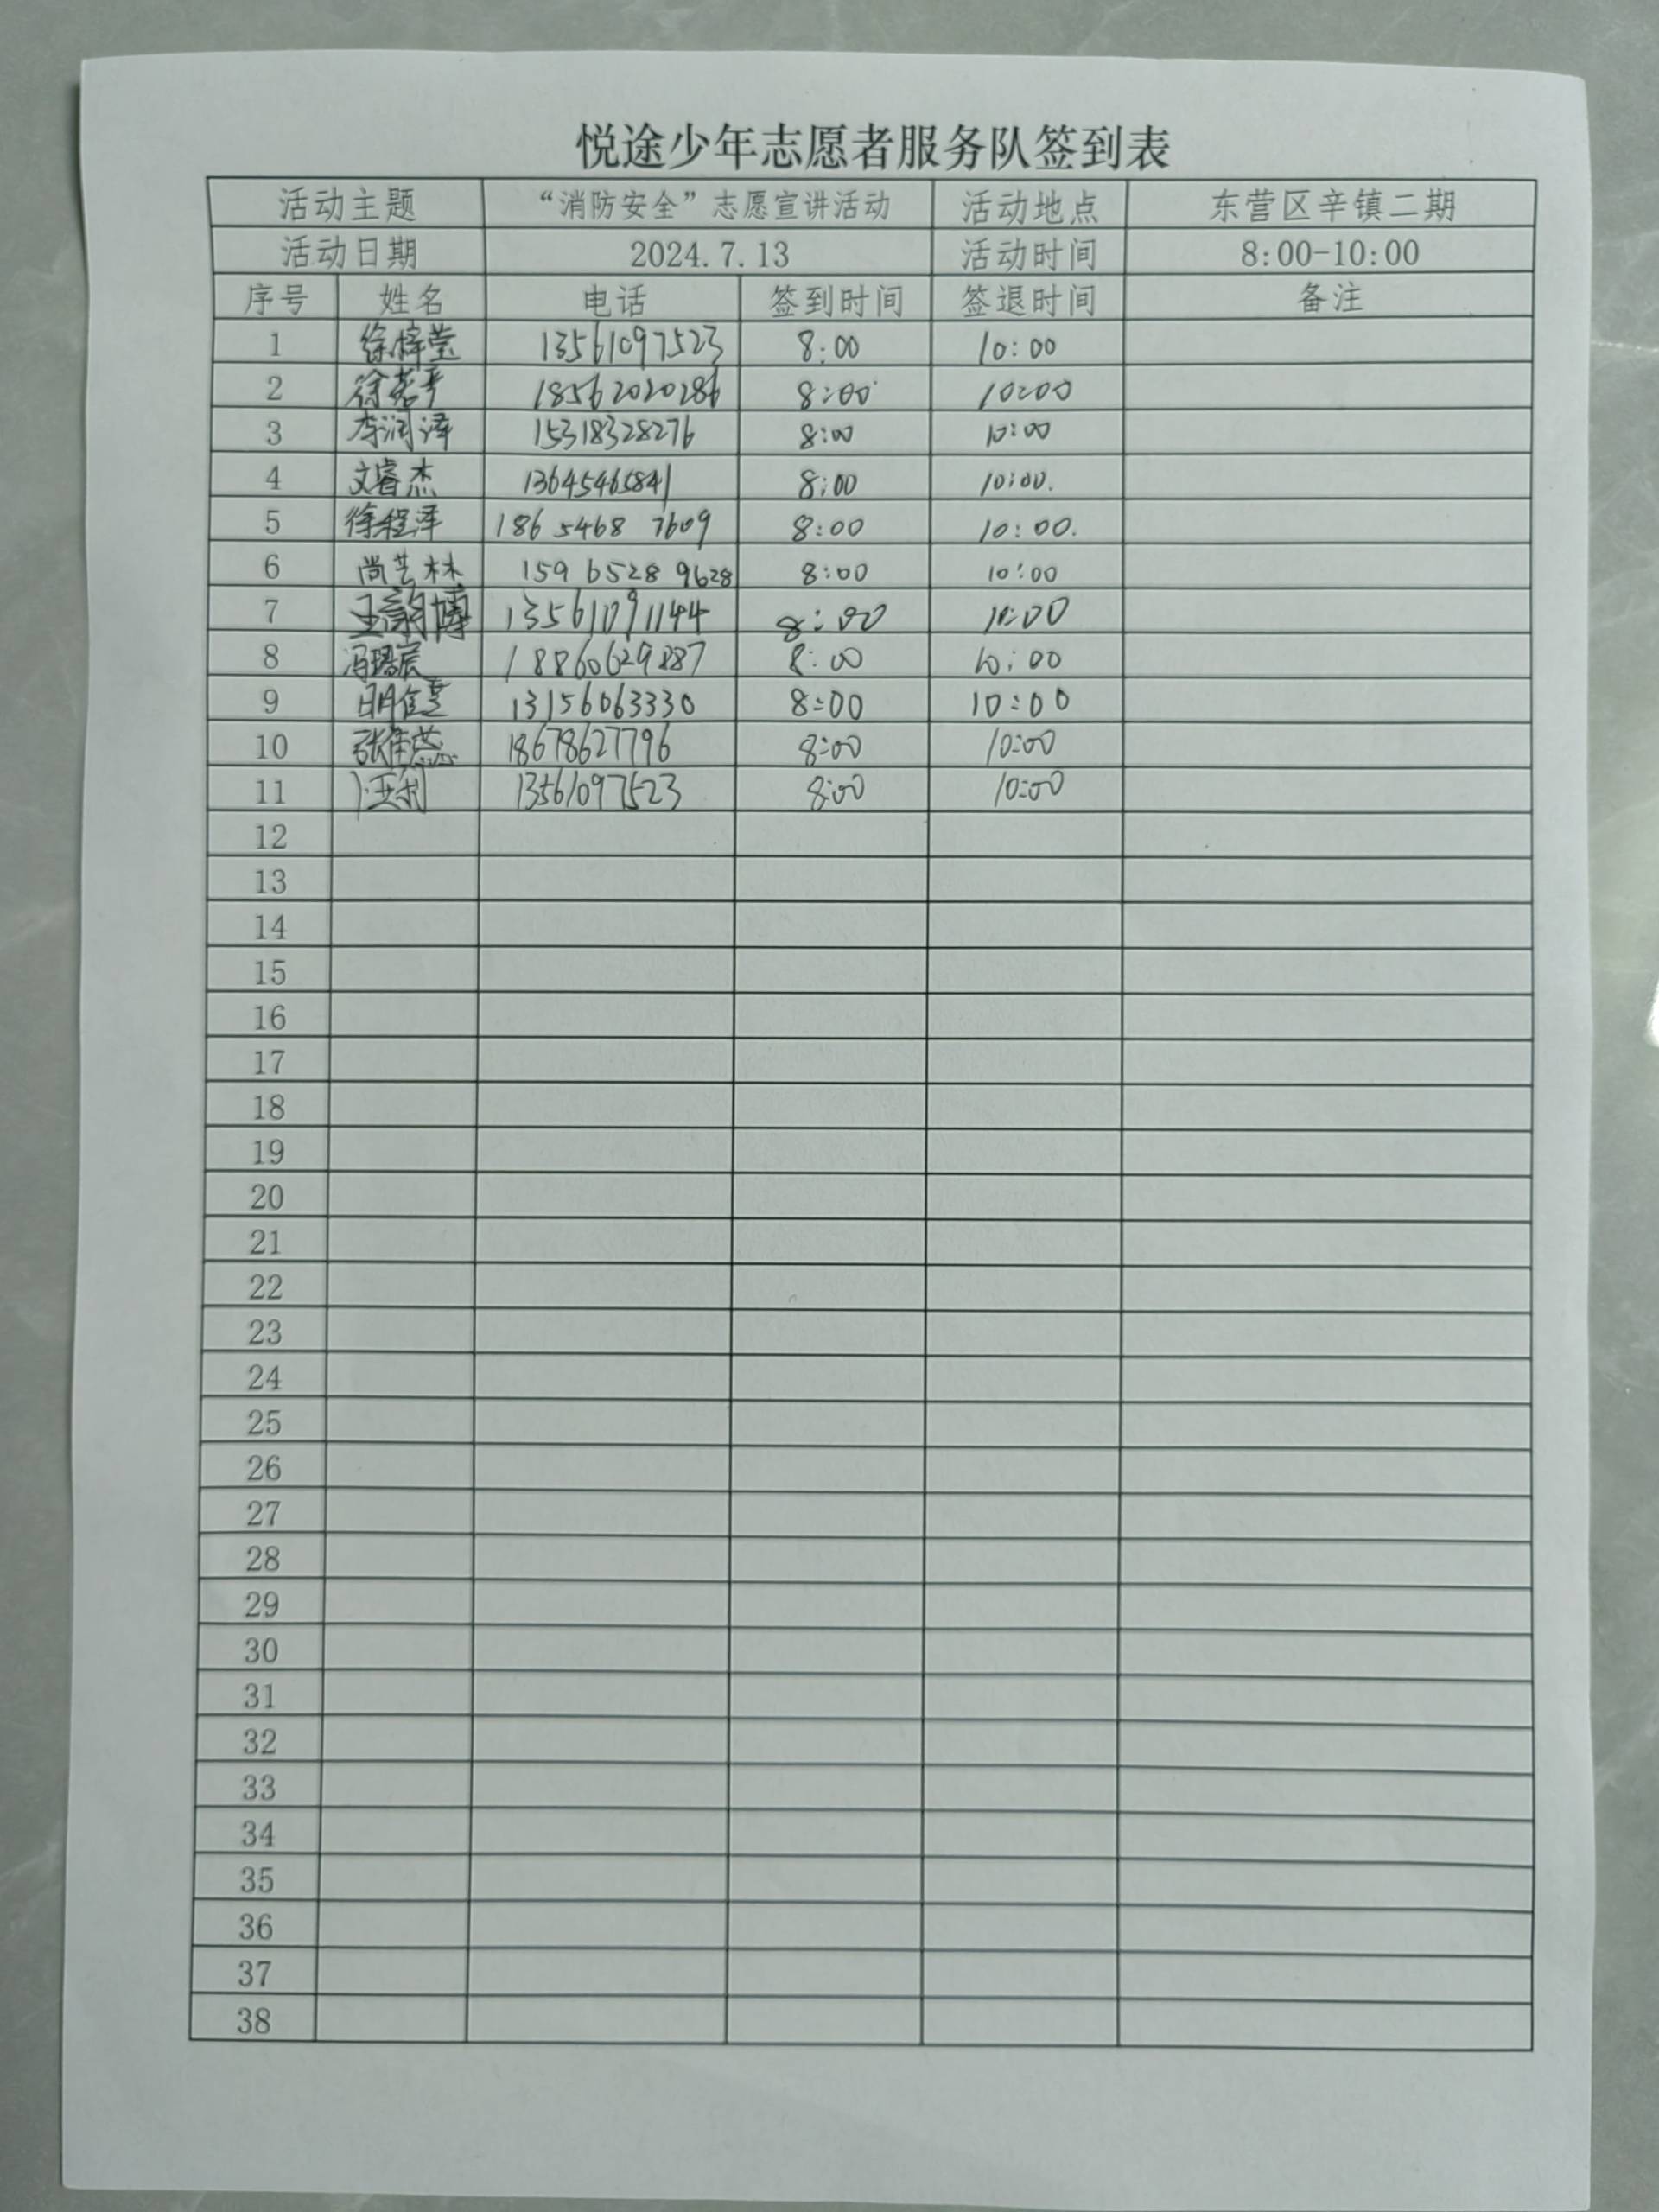 悦途少年志愿者服务队签到表
活动主题 “消防安全”志愿宣讲活动 活动地点 东营区辛镇二期
活动日期 2024.7.13 活动时间 8:00-10:00
序号 姓名 电话 签到时间 签退时间 备注
1 徐梓莹 13561097523 8:00 10:00
2 18562020286 8:00 10:00
3 李润泽 15318328276 8:00 10:00
4 文睿杰 13645465841 8:00 10:00.
5 徐程泽 186 5468 7609 8:00 10:00.
6 尚芸林 159 6528 9628 8:00 10:00
7 13561091144 8:00 10:00
8 18860629887 8:00 10:00
9 13156063330 8:00 10:00
10 18678627796 8:00 10:00
11 13561097523 8:00 10:00
12
13
14
15
16
17
18
19
20
21
22
23
24
25
26
27
28
29
30
31
32
33
34
35
36
37
38